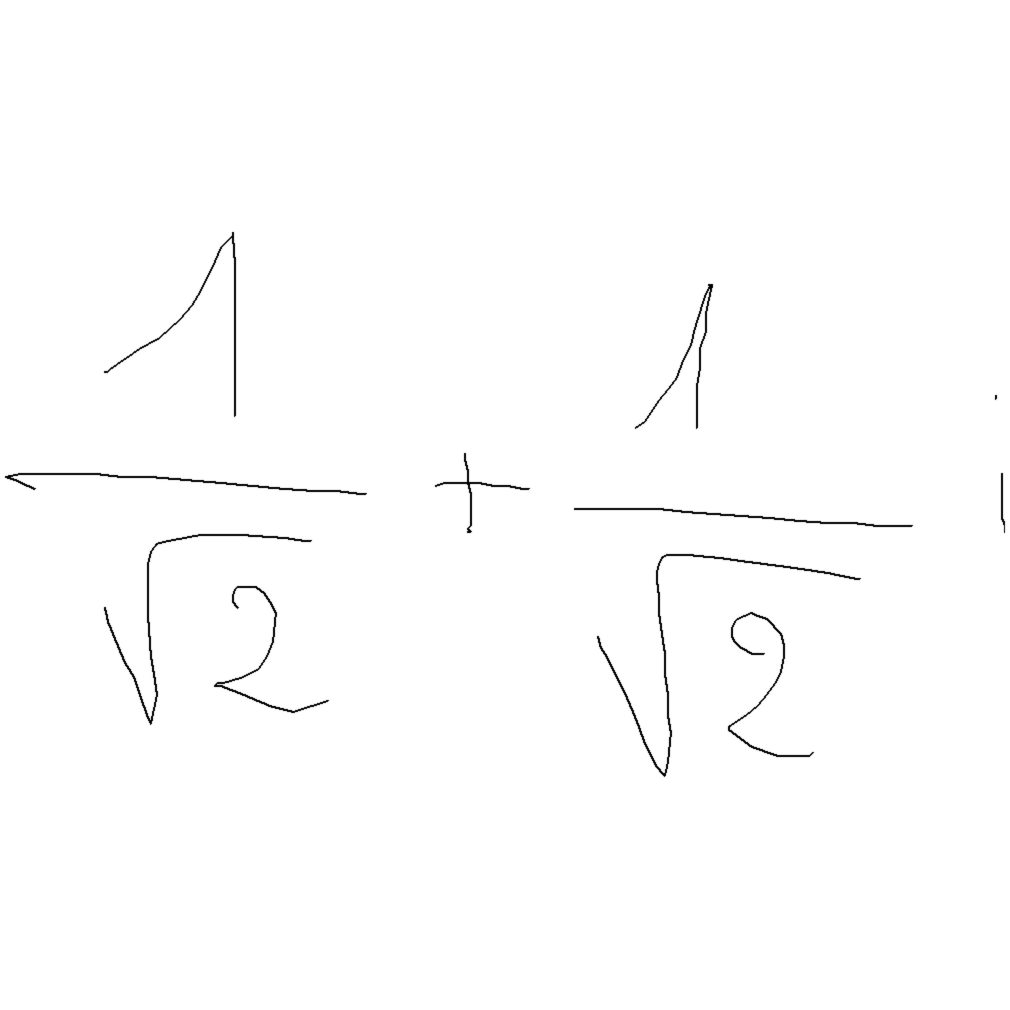 \frac{1}{\sqrt{2}} + \frac{1}{\sqrt{2}} i